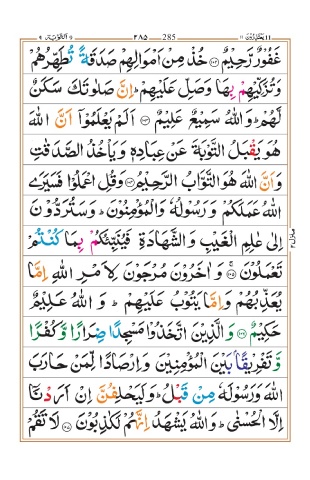 يعتذرون ١١ ٢٨٥ 285 التوبة ٩
غَفُوْرٌ رَّحِيْمٌ ﴿۱۰۲﴾ خُذْ مِنْ اَمْوَالِهِمْ صَدَقَةً تُطَهِّرُهُمْ
وَتُزَكِّيْهِمْ بِهَا وَصَلِّ عَلَيْهِمْ ؕ اِنَّ صَلٰوتَكَ سَكَنٌ
لَّهُمْ ؕ وَاللّٰهُ سَمِيْعٌ عَلِيْمٌ ﴿۱۰۳﴾ اَلَمْ يَعْلَمُوْۤا اَنَّ اللّٰهَ
هُوَ يَقْبَلُ التَّوْبَةَ عَنْ عِبَادِهٖ وَيَاْخُذُ الصَّدَقٰتِ
وَاَنَّ اللّٰهَ هُوَ التَّوَّابُ الرَّحِيْمُ ﴿۱۰۴﴾ وَقُلِ اعْمَلُوْا فَسَيَرَى
اللّٰهُ عَمَلَكُمْ وَرَسُوْلُهٗ وَالْمُؤْمِنُوْنَ ؕ وَسَتُرَدُّوْنَ
اِلٰى عٰلِمِ الْغَيْبِ وَالشَّهَادَةِ فَيُنَبِّئُكُمْ بِمَا كُنْتُمْ
تَعْمَلُوْنَ ﴿۱۰۵﴾ وَاٰخَرُوْنَ مُرْجَوْنَ لِاَمْرِ اللّٰهِ اِمَّا
يُعَذِّبُهُمْ وَاِمَّا يَتُوْبُ عَلَيْهِمْ ؕ وَاللّٰهُ عَلِيْمٌ
حَكِيْمٌ ﴿۱۰۶﴾ وَالَّذِيْنَ اتَّخَذُوْا مَسْجِدًا ضِرَارًا وَّكُفْرًا
وَّتَفْرِيْقًۢا بَيْنَ الْمُؤْمِنِيْنَ وَاِرْصَادًا لِّمَنْ حَارَبَ
اللّٰهَ وَرَسُوْلَهٗ مِنْ قَبْلُ ؕ وَلَيَحْلِفُنَّ اِنْ اَرَدْنَاۤ
اِلَّا الْحُسْنٰى ؕ وَاللّٰهُ يَشْهَدُ اِنَّهُمْ لَكٰذِبُوْنَ ﴿۱۰۷﴾ لَا تَقُمْ
منزل ٢